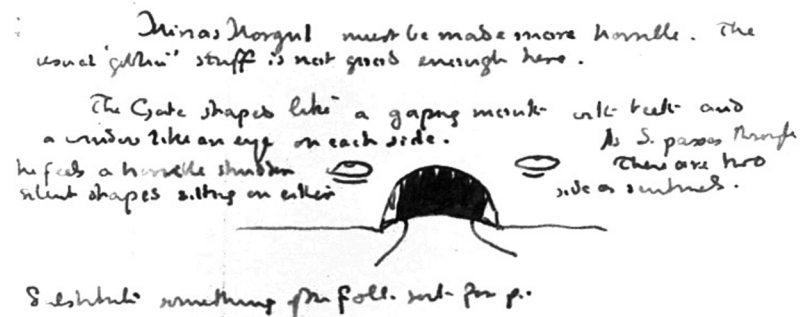 Minas Morgul must be made more horrible. The
usual 'goblin' stuff is not good enough here.
The Gate shaped like a gaping mouth with teeth and
a window like an eye on each side.
As S. passes through
he feels a horrible shudder
There are two
silent shapes sitting on either
side as sentinels.
Substitute something of the foll. sort for p.